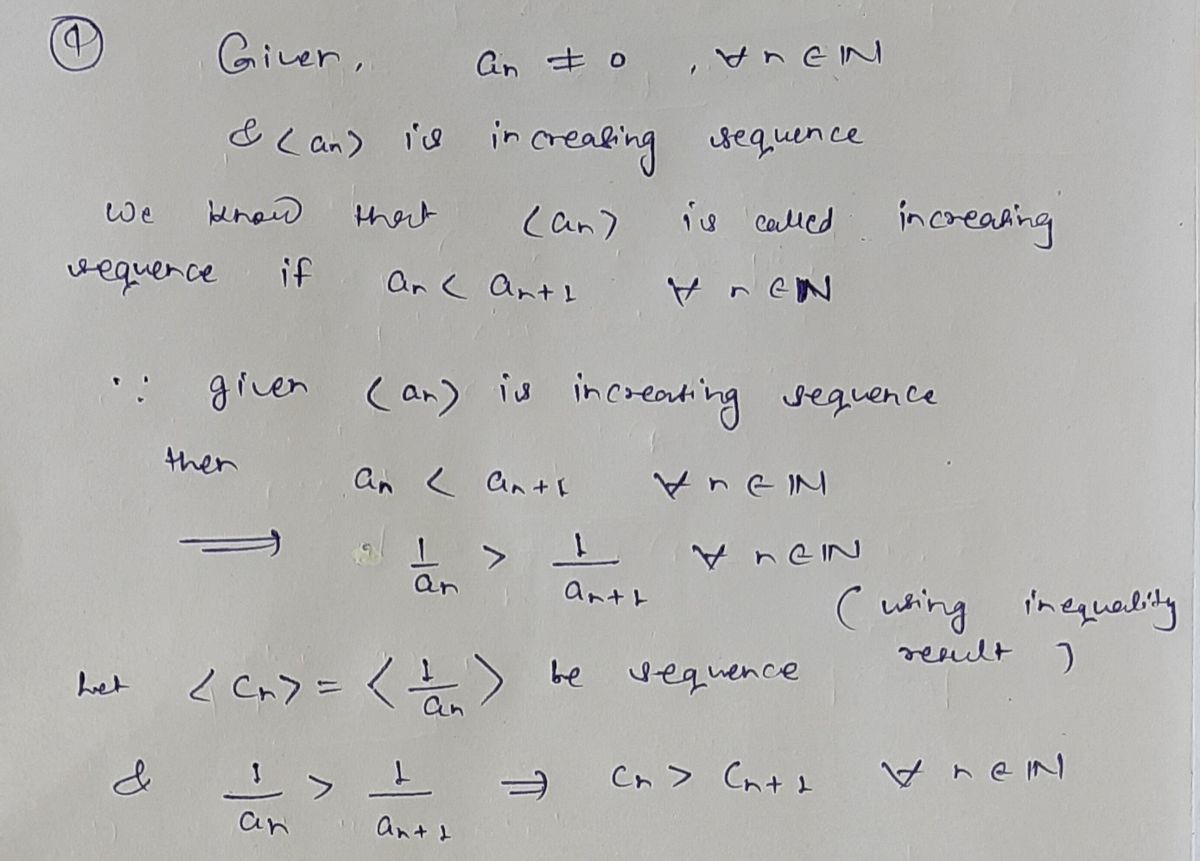 ① Given, an ≠ 0 , ∀ n ∈ IN
& <an> is increasing sequence
we know that <an> is called increasing
sequence if an < an+1 ∀ n ∈ IN
∵ given <an> is increasing sequence
then an < an+1 ∀ n ∈ IN
⟹ 1/an > 1/an+1 ∀ n ∈ IN
(using inequality
result)
Let <Cn> = <1/an> be sequence
& 1/an > 1/an+1 ⇒ Cn > Cn+1 ∀ n ∈ IN